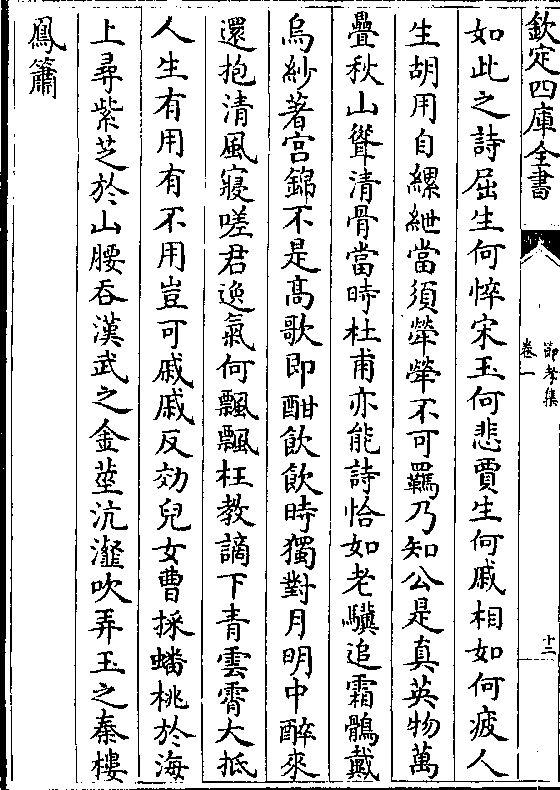 欽定四庫全書
節孝集
卷一
十二
如此之詩屈生何悴宋玉何悲賈生何戚相如何疲人
生胡用自縲紲當須犖犖不可羈乃知公是真英物萬
疊秋山聳清骨當時杜甫亦能詩恰如老驥追霜鶻戴
烏紗著宮錦不是高歌即酣飲飲時獨對月明中醉來
還抱清風寢嗟君逸氣何飄飄枉教謫下青雲霄大抵
人生有用有不用豈可戚戚反效兒女曹採蟠桃於海
上尋紫芝於山腰吞漢武之金莖沆瀣吹弄玉之秦樓
鳳簫